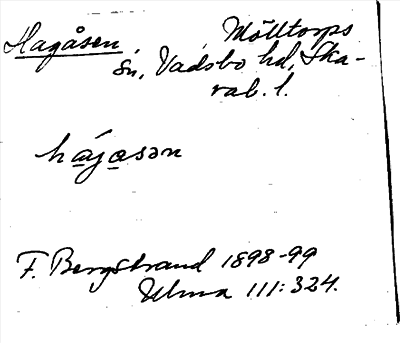 Hagåsen. Mölltorps
sn, Vadsbo hd, Ska-
rab. l.
hájasən
F. Bergstrand 1898-99
Ulma 111:324.